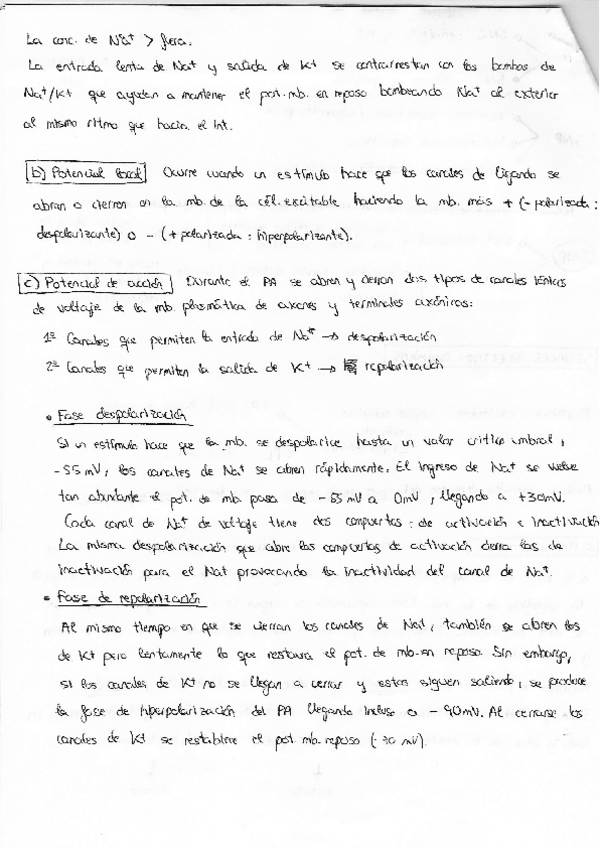 La conc. de Na+ > fuera.
La entrada lenta de Na+ y salida de K+ se contrarrestan con las bombas de
Na+/K+ que ayudan a mantener el pot. mb. en reposo bombeando Na+ al exterior
al mismo ritmo que hacia el int.
b) Potencial local Ocurre cuando un estímulo hace que los canales de ligando se
abran o cierren en la mb. de la cél. excitable haciendo la mb. más + (- polarizada :
despolarizante) o - (+ polarizada : hiperpolarizante).
c) Potencial de acción Durante el PA se abren y cierran dos tipos de canales iónicos
de voltaje de la mb. plasmática de axones y terminales axónicos:
1º Canales que permiten la entrada de Na+ → despolarización
2º Canales que permiten la salida de K+ → repolarización
• Fase despolarización
Si un estímulo hace que la mb. se despolarice hasta un valor crítico umbral,
-55 mV, los canales de Na+ se abren rápidamente. El ingreso de Na+ se vuelve
tan abundante el pot. de mb. pasa de -55 mV a 0mV, llegando a +30mV.
Cada canal de Na+ de voltaje tiene dos compuertas : de activación e inactivación
La misma despolarización que abre las compuertas de activación cierra las de
inactivación para el Na+ provocando la inactividad del canal de Na+.
• Fase de repolarización
Al mismo tiempo en que se cierran los canales de Na+, también se abren los
de K+ pero lentamente lo que restaura el pot. de mb. en reposo. Sin embargo,
si los canales de K+ no se llegan a cerrar y estos siguen saliendo, se produce
la fase de hiperpolarización del PA llegando incluso a -90mV. Al cerrarse los
canales de K+ se restablece el pot. mb. reposo (-70 mV).